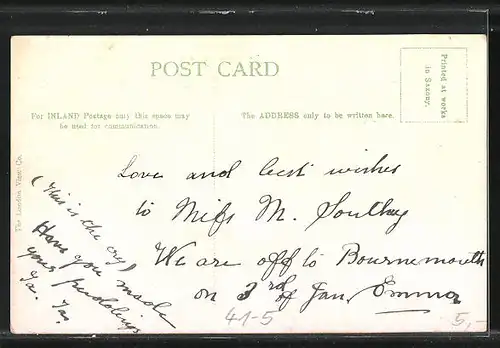 POST CARD
Printed at works
in Saxony.
For INLAND Postage only this space may
be used for communication.
The ADDRESS only to be written here.
The London View Co.
Love and best wishes
to Miss M. Southey
We are off to Bournemouth
on 3rd of Jan, Emma
(This is the cry)
Have you made
your puddings
Ta. Ta.
41-5
5,-